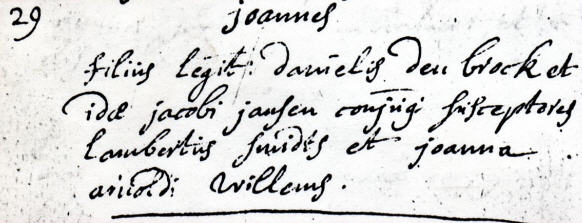 29 joannes
filius legit: danielis den brock et
idæ jacobi jansen conjugū susceptores
lambertus smidts et joanna
arnoldi willems.